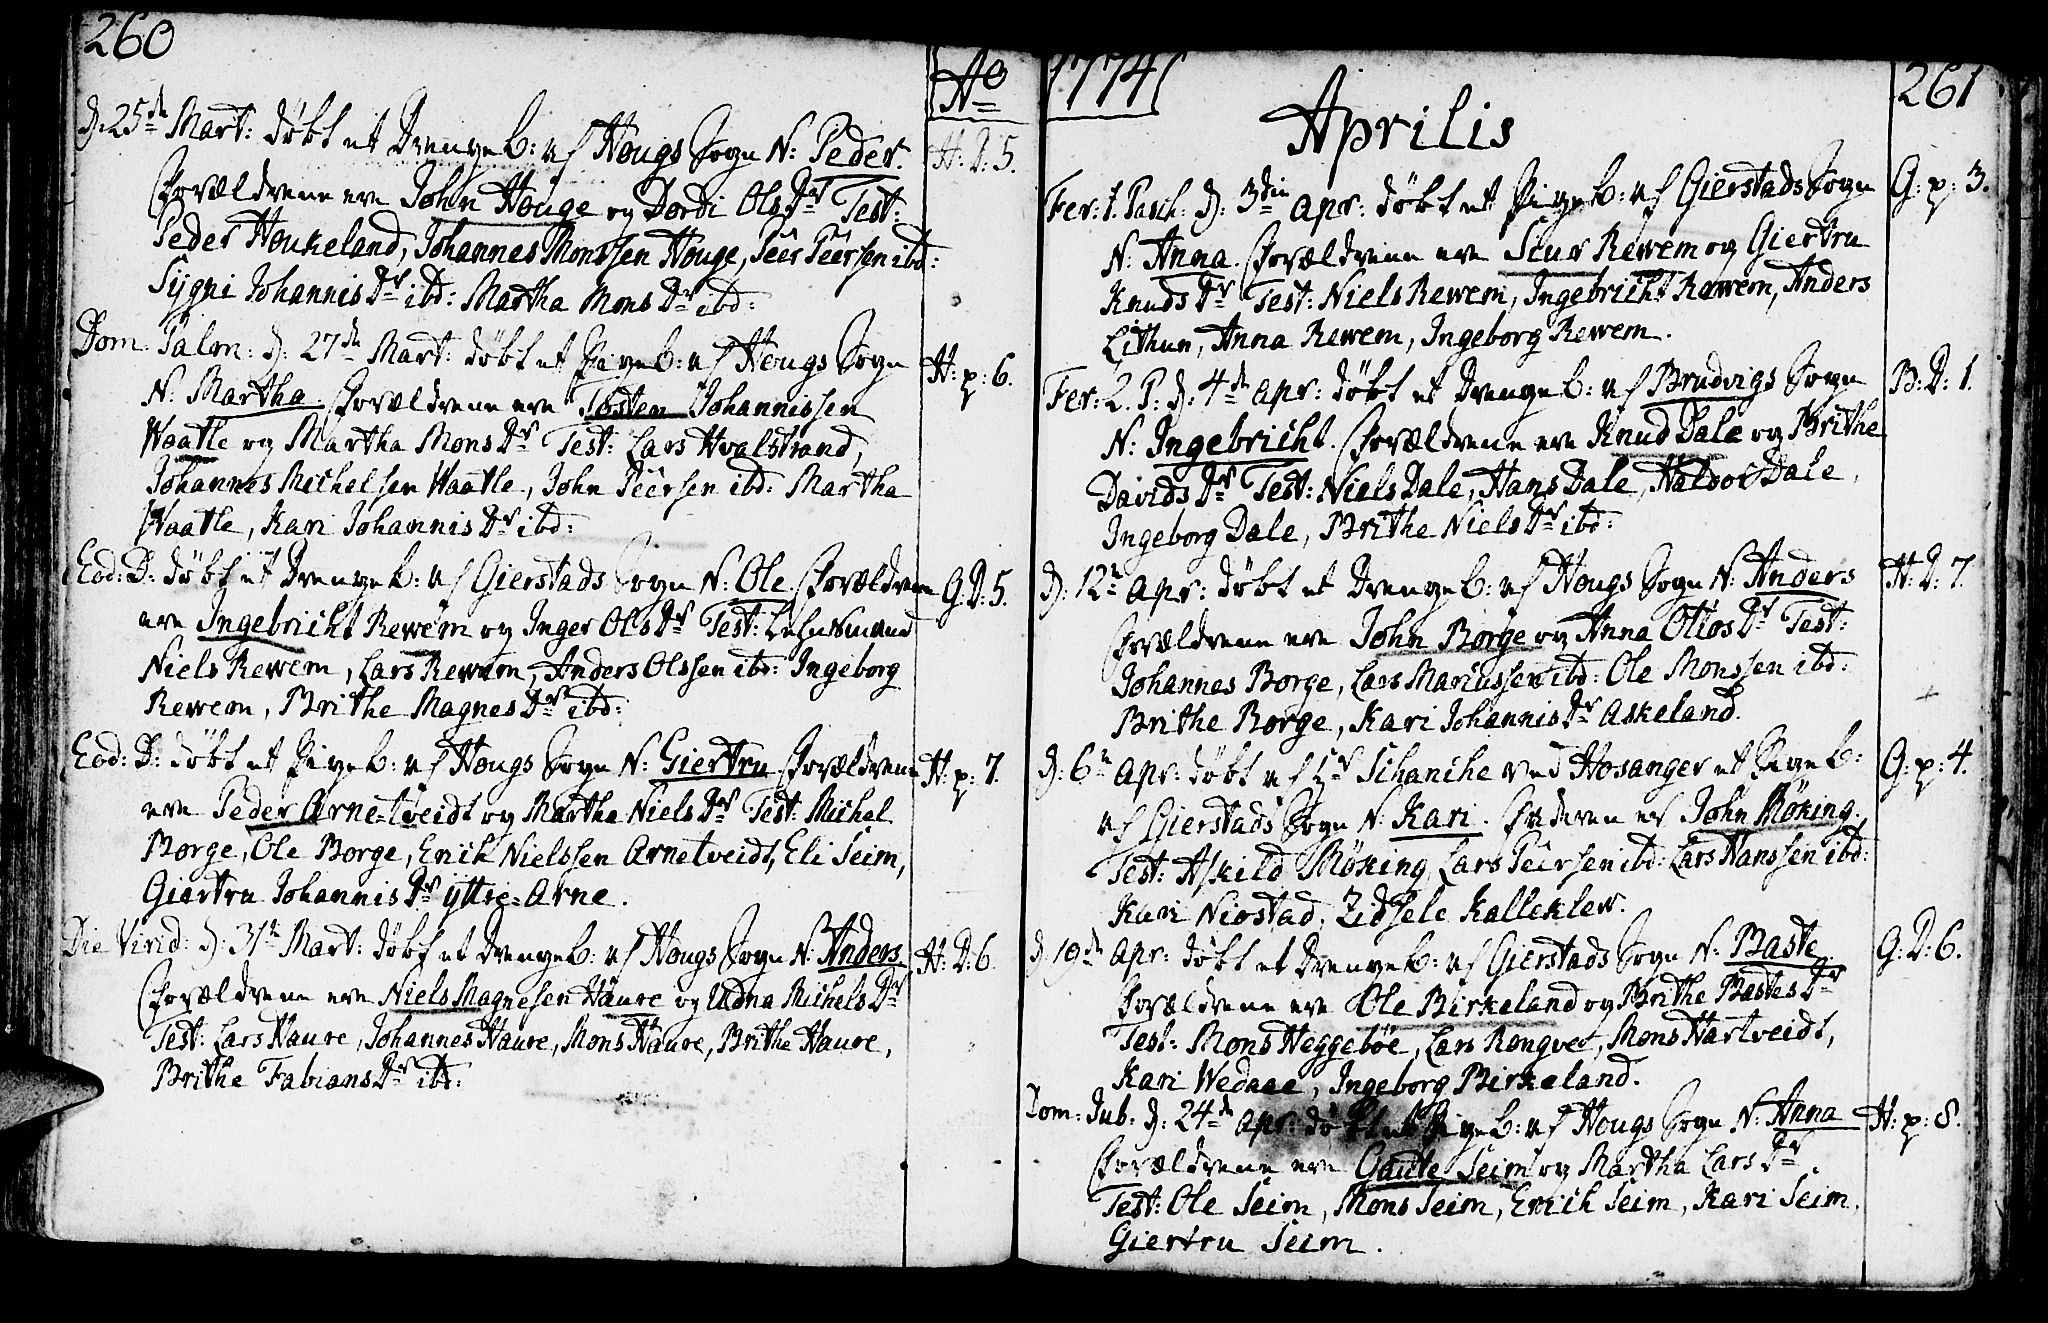 260
Ao
d: 25de Mart: døbt et Drengeb: af Hougs Sogn N: Peder. H: D: 5.
Forældrene ere John Houge og Dordi OlsDr Test:
Peder Houkeland, Johannes Monssen Houge, Peer Peersen ibd:
Sygni JohannisDr ibd: Martha MonsDr ibd:
Dom. Palm: d: 27de Mart: døbt et Pigeb: af Hougs Sogn H: p: 6.
N: Martha. Forældrene ere Tosten Johannissen
Waatle og Martha MonsDr Test: Lars Hvalstrand,
Johannes Michelsen Waatle, John Peersen ibd: Martha
Waatle, Kari JohannisDr ibd:
Eod: D: døbt et Drengeb: af Gierstads Sogn N: Ole. Forældrene G: D: 5.
ere Ingebricht Rewem og Inger OlsDr Test: Lehnsmand
Niels Rewem, Lars Rewem, Anders Olssen ibd: Ingeborg
Rewem, Brithe MagnesDr ibd:
Eod: D: døbt et Pigeb: af Hougs Sogn N: Giertru Forældrene H: p: 7.
ere Peder Arne-tveidt og Martha NielsDr Test: Michel
Borge, Ole Borge, Erich Nielssen Arnetveidt, Eli Seim,
Giertru JohannisDr yttre=Arne.
Die Virid: d: 31te Mart: døbt et Drengeb: af Hougs Sogn N: Anders H: D: 6.
Forældrene ere Niels Magnesen Haure og Udna MichelsDr
Test: Lars Haure, Johannes Haure, Mons Haure, Brithe Haure,
Brithe FabiansDr ibd:
1774
261
Aprilis
Fer: 1. Pasch: d: 3die Apr: døbt et Pigeb: af Gierstads Sogn G: p: 3.
N: Anna. Forældrene ere Siur Rewem og Giertru
KnudsDr Test: Niels Rewem, Ingebricht Rewem, Anders
Lithun, Anna Rewem, Ingeborg Rewem.
Fer: 2. P: d: 4de Apr: døbt et Drengeb: af Brudvigs Sogn B: D: 1.
N: Ingebricht. Forældrene ere Knud Dale og Brithe
DavidsDr Test: Niels Dale, Hans Dale, Haldor Dale,
Ingeborg Dale, Brithe NielsDr ibd:
d: 12te Apr: døbt et Drengeb: af Hougs Sogn N: Anders H: D: 7.
Forældrene ere John Borge og Anna Dr Test:
Johannes Borge, Lars Mariussen ibd: Ole Monssen ibd:
Brithe Borge, Kari JohannisDr Askeland.
d: 6te Apr: døbt af Hr Schanche ved Hosanger et Pigeb: G: p: 4.
af Gierstads Sogn N: Kari. Faderen er John Møking,
Test: Askild Møking Lars Peersen ibd: Lars Hanssen ibd:
Kari Niostad, Zidsele Kalleklew.
d 19de Apr: døbt et Drengeb: af Gierstads Sogn N: Baste G: D: 6.
Forældrene ere Ole Birkeland og Brithe BastesDr
Test: Mons Heggebøe, Lars Rongved, Mons Hartveidt,
Kari Wedaae, Ingeborg Birkeland.
Dom: Jub: d: 24de Apr: døbt et Pigeb: af Hougs Sogn N: Anna H: p: 8.
Forældrene ere Gaute Seim og Martha LarsDr.
Test: Ole Seim, Mons Seim, Erich Seim, Kari Seim.
Giertru Seim.